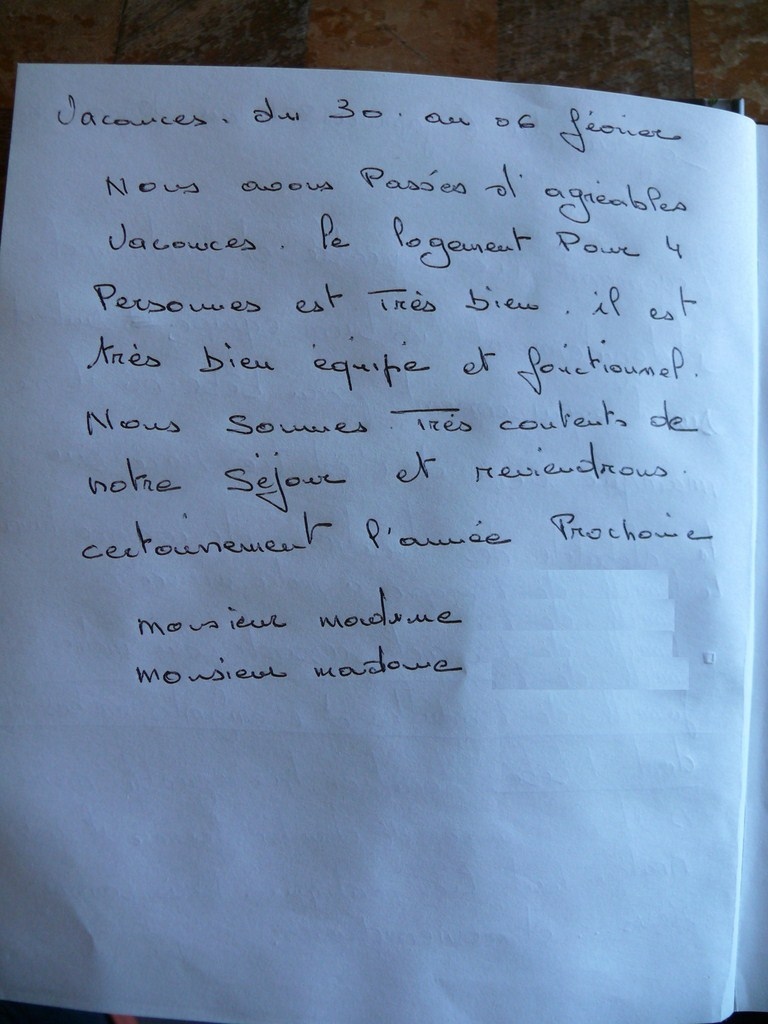 Vacances. du 30. au 06 février
Nous avons Passées d'agréables
Vacances. le logement Pour 4
Personnes est Très bien. il est
très bien équipé et fonctionnel.
Nous Sommes Très contents de
notre Séjour et reviendrons.
certainement l'année Prochaine
monsieur madame
monsieur madame